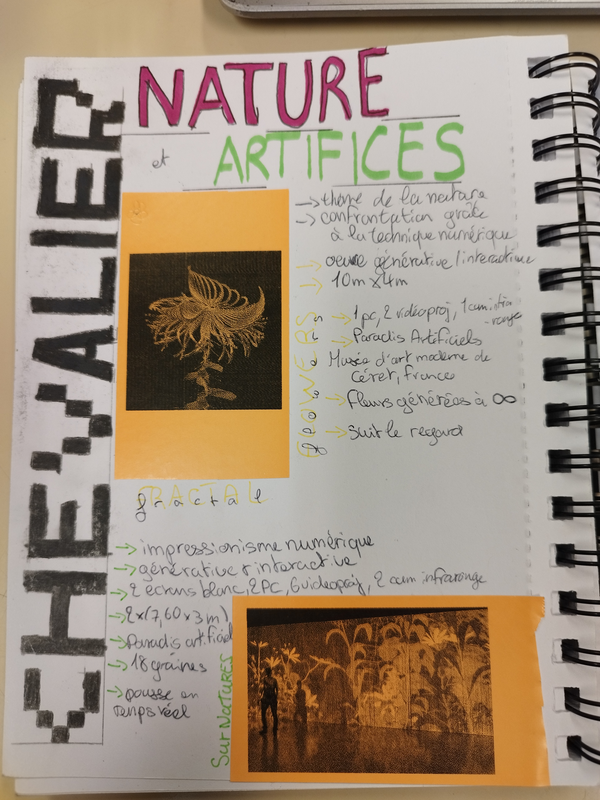 CHEVALIER
NATURE
et ARTIFICES
→ thème de la nature
→ confrontation grâce
à la technique numérique
→ oeuvre générative/interactive
→ 10m x 4m
→ 1 pc, 2 vidéoproj, 1 cam infra
-rouge
→ Paradis Artificiels
Musée d'art moderne de
Céret, France
→ fleurs générées à ∞
→ suit le regard
FLOWERS
FRACTAL
→ impressionisme numérique
→ générative & interactive
→ 2 écrans blanc, 2PC, 6 videoproj, 2 cam infrarouge
→ 2x(7,60 x 3m)
→ Paradis artificiel
→ 18 graines
→ pousse en
temps réel
Sur NATURES